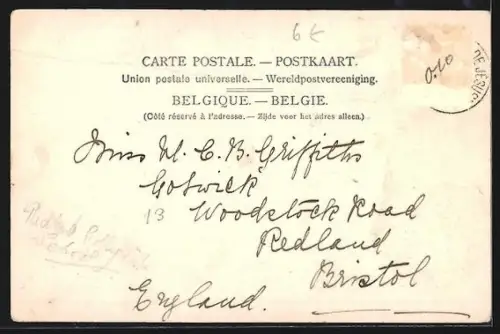 6€
CARTE POSTALE. — POSTKAART.
Union postale universelle. — Wereldpostvereeniging.
BELGIQUE. — BELGIE.
(Côté réservé à l'adresse. — Zijde voor het adres alleen.)
0.10
DE JÉSUS
Miss W. C. B. Griffiths
Gotswick
13 Woodstock Road
Redland
Bristol
England.